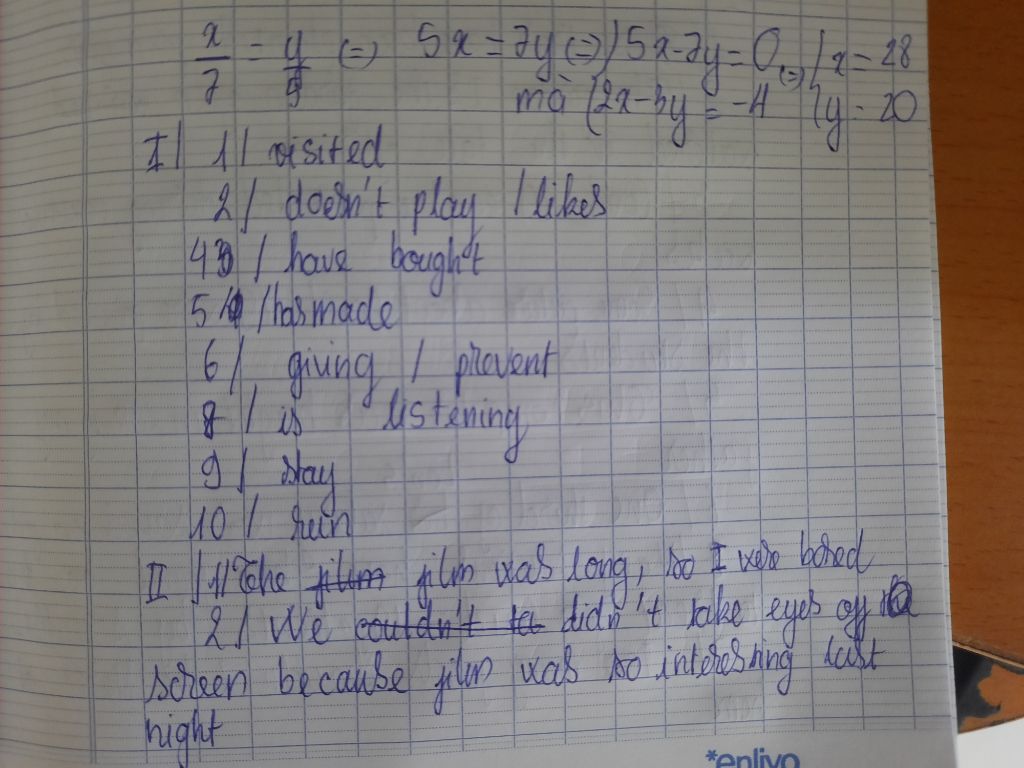 x/7 = y/5 (=) 5x = 7y (=) { 5x - 7y = 0 (=) { x = 28
mà { 2x - 3y = -4 { y = 20
I/ 1/ visited
2/ doesn't play / likes
43 / have bought
5/ / has made
6/ giving / prevent
8/ is listening
9/ stay
10/ run
II/ 1/ The film film was long, so I were bored
2/ We couldn't ta didn't take eyes off
screen because film was so interesting last
night
*enlivo